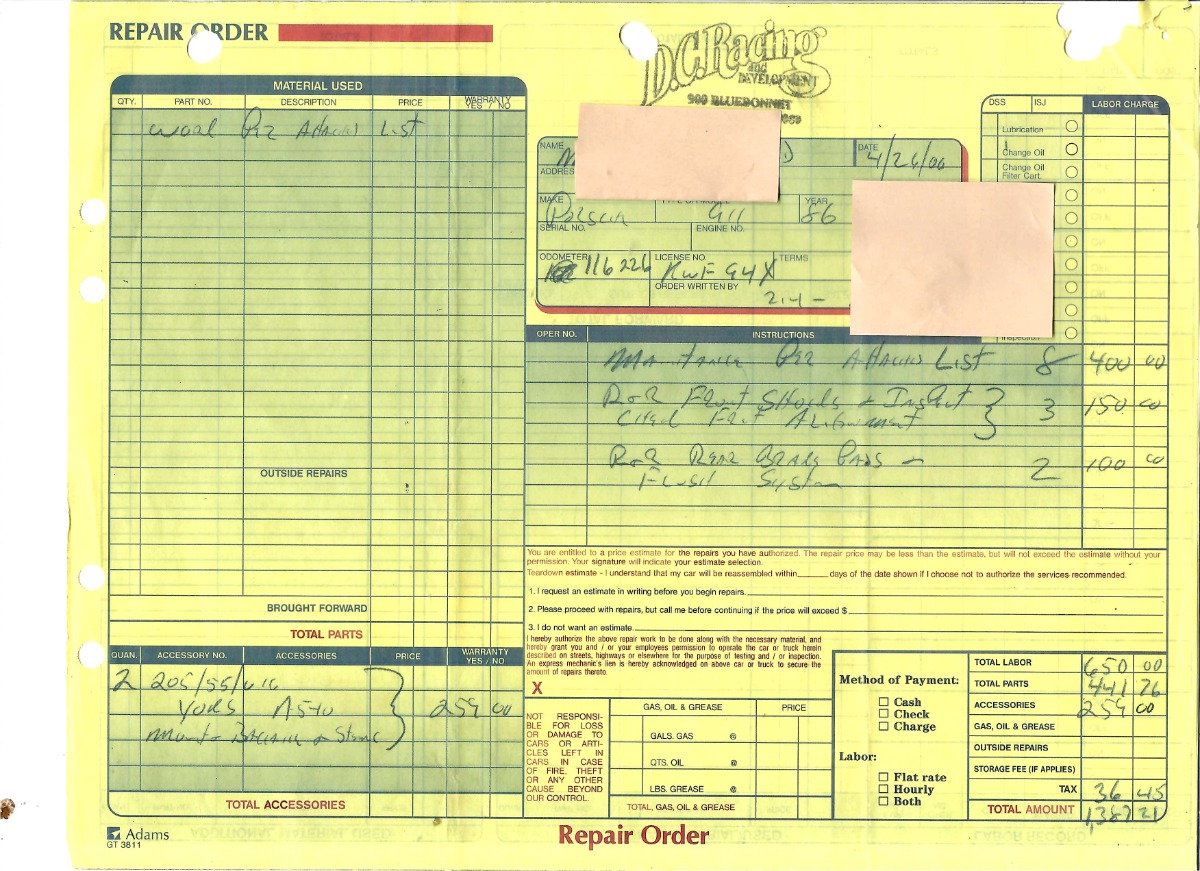 REPAIR ORDER
D.C. Racing
and
DEVELOPMENT
900 BLUEBONNET
MATERIAL USED
QTY. PART NO. DESCRIPTION PRICE WARRANTY YES / NO
Per Attached List
OUTSIDE REPAIRS
BROUGHT FORWARD
TOTAL PARTS
QUAN. ACCESSORY NO. ACCESSORIES PRICE WARRANTY YES / NO
2 205/55/
A540 259 00
Mount + Balance +
TOTAL ACCESSORIES
Adams
GT 3811
NAME
DATE 4/26/00
ADDRESS
MAKE 911 YEAR 86
SERIAL NO. ENGINE NO.
ODOMETER 116226 LICENSE NO. TERMS
ORDER WRITTEN BY
DSS ISJ LABOR CHARGE
Lubrication
Change Oil
Change Oil
Filter Cart.
OPER NO. INSTRUCTIONS
Per Attached List 8 400 00
R&R Front Shocks + Inspect 3 150 00
Alignment
R&R Rear Brake Pads 2 100 00
Flush System
You are entitled to a price estimate for the repairs you have authorized. The repair price may be less than the estimate, but will not exceed the estimate without your
permission. Your signature will indicate your estimate selection.
Teardown estimate - I understand that my car will be reassembled within______ days of the date shown if I choose not to authorize the services recommended.
1. I request an estimate in writing before you begin repairs.
2. Please proceed with repairs, but call me before continuing if the price will exceed $
3. I do not want an estimate.
I hereby authorize the above repair work to be done along with the necessary material, and
hereby grant you and / or your employees permission to operate the car or truck herein
described on streets, highways or elsewhere for the purpose of testing and / or inspection.
An express mechanic's lien is hereby acknowledged on above car or truck to secure the
amount of repairs thereto.
X
NOT RESPONSI-
BLE FOR LOSS
OR DAMAGE TO
CARS OR ARTI-
CLES LEFT IN
CARS IN CASE
OF FIRE, THEFT
OR ANY OTHER
CAUSE BEYOND
OUR CONTROL.
GAS, OIL & GREASE PRICE
GALS. GAS @
QTS. OIL @
LBS. GREASE @
TOTAL, GAS, OIL & GREASE
Method of Payment:
Cash
Check
Charge
Labor:
Flat rate
Hourly
Both
TOTAL LABOR 650 00
TOTAL PARTS 441 76
ACCESSORIES 259 00
GAS, OIL & GREASE
OUTSIDE REPAIRS
STORAGE FEE (IF APPLIES)
TAX 36 45
TOTAL AMOUNT 1,387 21
Repair Order